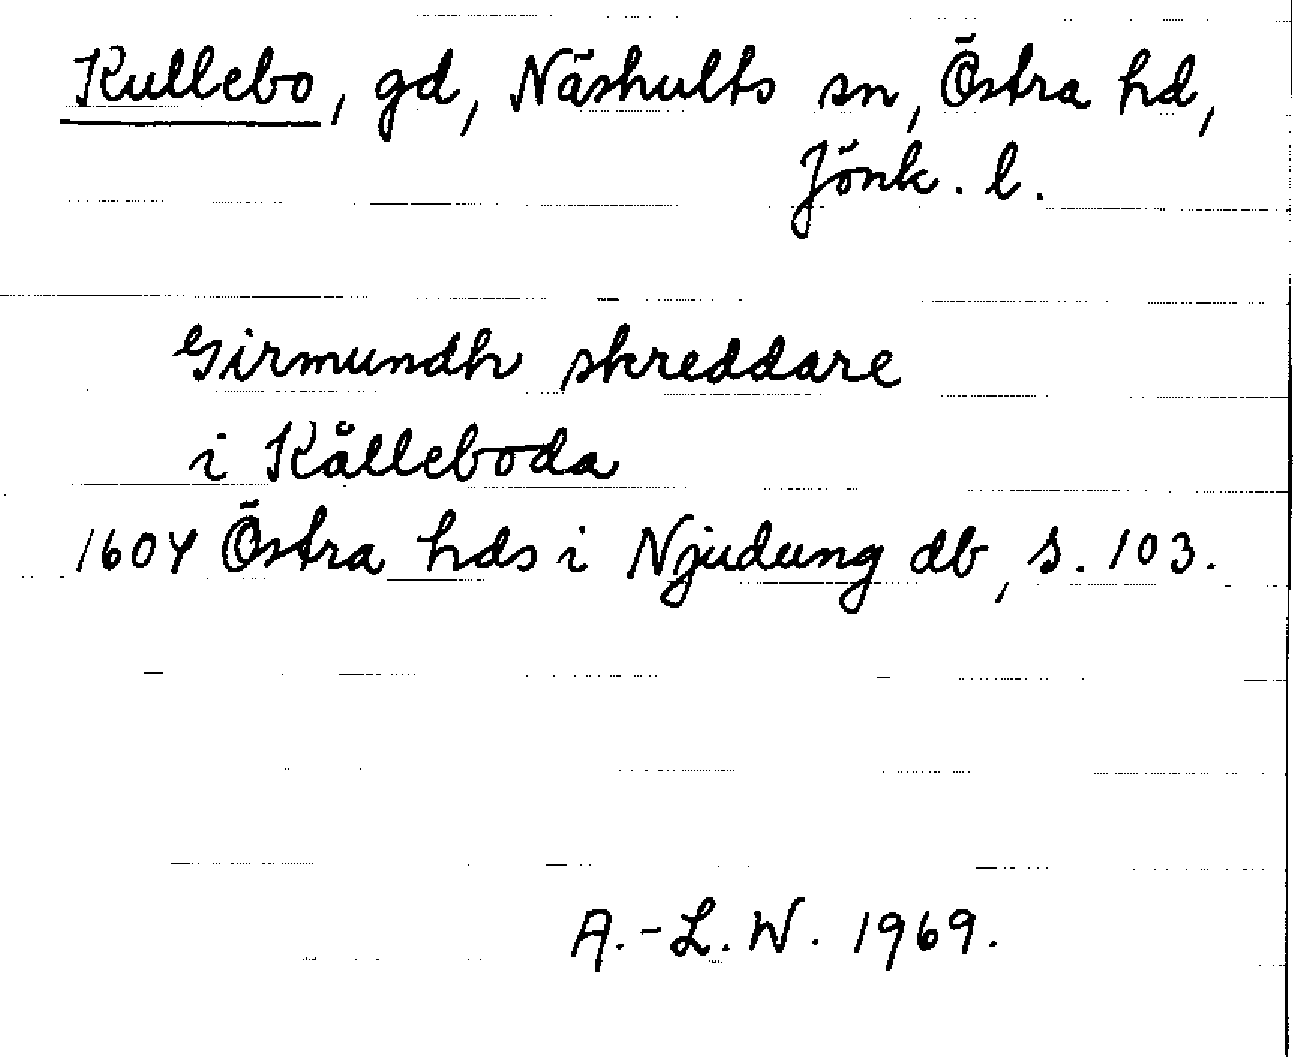 Kullebo, gd, Näshults sn, Östra hd,
Jönk. l.
Girmundh skreddare
i Kålleboda
1604 Östra hds i Njudung db, s. 103.
A.-L. W. 1969.